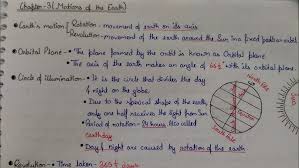 Chapter-3 (Motions of the Earth)
• Earth's motion [Rotation - movement of earth on its axis
Revolution - movement of the earth around the Sun in a fixed path or orbit
• Orbital Plane - • The plane formed by the orbit is known as Orbital plane
• The axis of the earth makes an angle of 66½° with its orbital plane
• Circle of illumination - • It is the circle that divides the day
& night on the globe
• Due to the spherical shape of the earth,
only one half receives the light from Sun
• Period of rotation - 24 hours also called
earthday
• Day & night are caused by rotation of the earth
• Revolution - • Time taken - 365¼ days
North Pole
South Pole